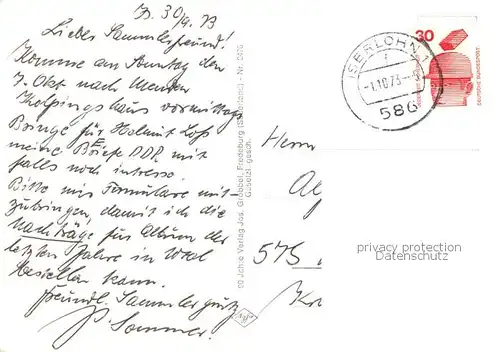 Is. 30/9. 73
Liebes Sammlerfreund!
Komme am Sonntag den
7. Okt nach Menden
Kolpingshaus vormittags
Bringe für Helmut Loß
meine Briefe DDR mit
falls noch intresse.
Bitte mir Formulare mit-
zubringen, damit ich die
Nachträge für Album der
letzten Jahre in Wbl
bestellen kann.
Freundl. Sammlergruß
P. Sommer.
60 Jahre Verlag Jos. Grobbel, Fredeburg (Sauerland) - Nr. 5426
Gesetzl. gesch.
30
DEUTSCHE BUNDESPOST
ISERLOHN 1
-1.10.73-9
586
Herrn
575
privacy protection
Datenschutz